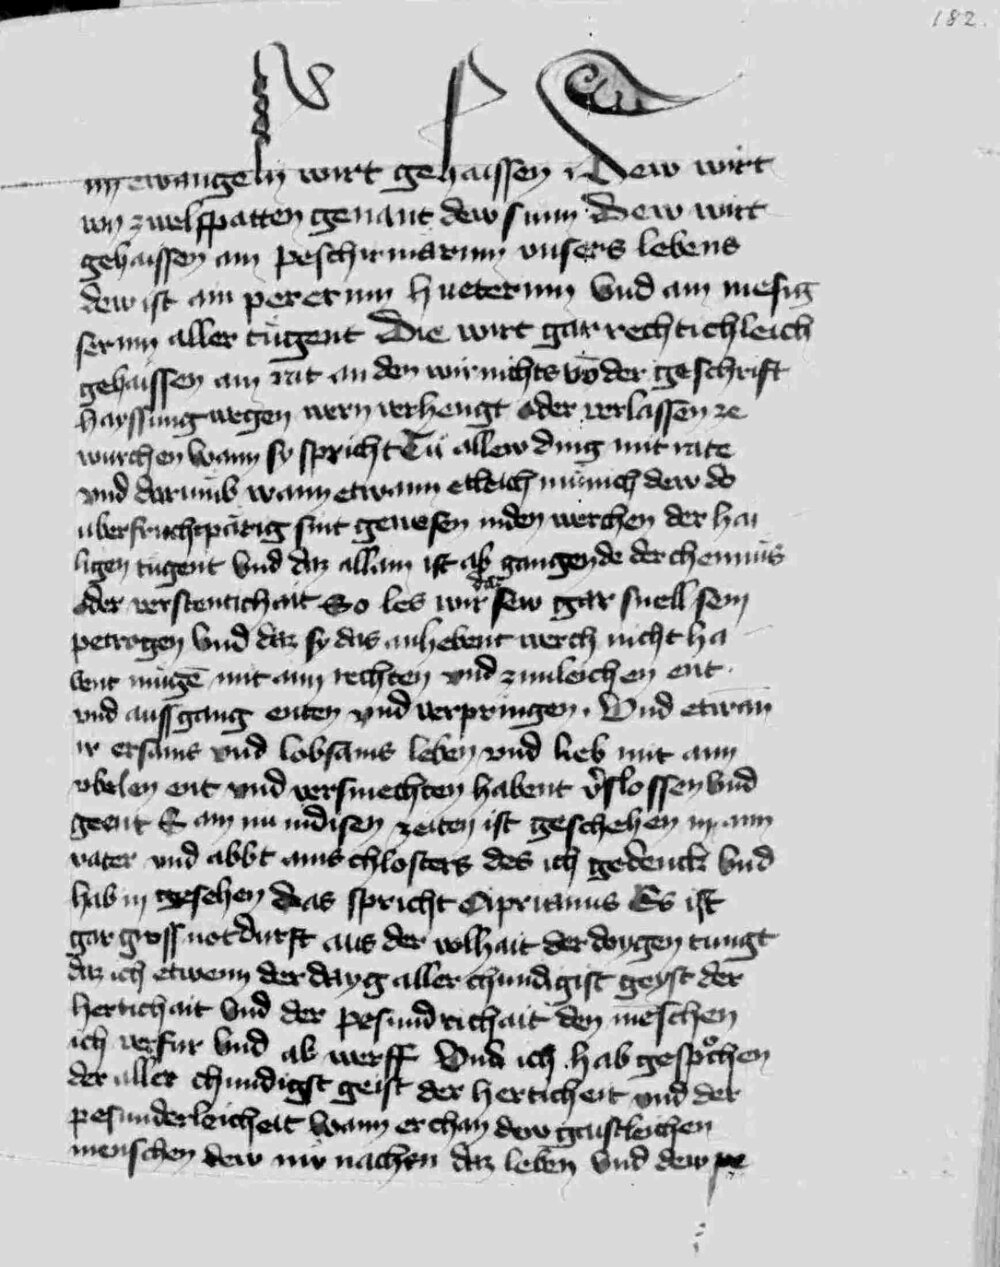 182.
im ewangelij wirt gehaissen · Dew wirt
von zwelfpatten genant dew sunn · Dew wirt
gehaissen ain peschirmarinn unsers lebens
dew ist ain pererinn hueterinn Vnd ain mesig
serinn aller tugent Die wirt gar rechtichleich
gehaissen ain rat an den wir nichts vō der geschrift
hayssung wegen wern verhengt oder verlassen ze
wurchen Wann sy spricht Tu allew ding mit rate
vnd darumb wann etwann etleich münich dew do
uberfruchtpärig sint gewesen in den werchen der hai
ligen tugent Vnd daz allain ist ab gangen de der chennuss
oder verstentichait So les wir daz sew gar snell sein
petrogen Vnd daz sy das anhebent werch nicht ha
bent mügē mit aim rechten vnd zimleichen ent
vnd aussgang enten vnd verpringen · Vnd etwan
ir ersams vnd lobsams leben vnd lieb mit aim
vbelen ent vnd versmechten habent v̓slossen Vnd
geent Es am nu in disen zeiten ist geschehen in aim
vater vnd abbt ains chlosters des ich gedenck Vnd
hab in gesehen Das spricht Ciprianus Es ist
gar gross notdurft aus der volhait der doygen tungt
daz ich etwenn der dayg aller chundigist geyst der
hertichait Vnd der pesundrichait den meschen
ich verfur Vnd ab werff Vnd ich hab gespͦchen
der aller chundigst geist der herticheit vnd der
pesunderleicheit Wann er chan dew gaistleichen
menschen dew mir nachen daz leben Vnd dew pe